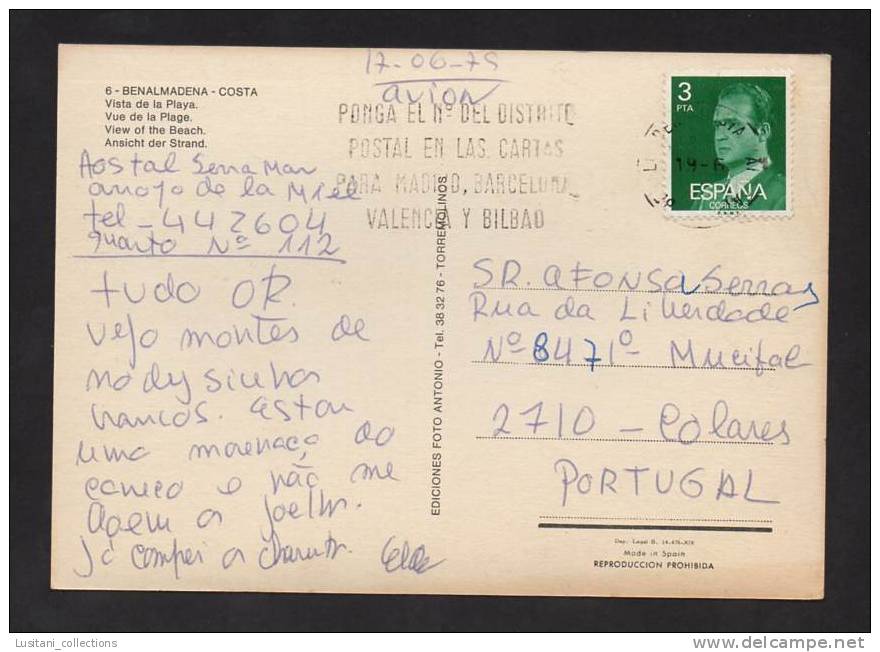 6 - BENALMADENA - COSTA
Vista de la Playa.
Vue de la Plage.
View of the Beach.
Ansicht der Strand.
17-06-79
avion
PONGA EL Nº DEL DISTRITO
POSTAL EN LAS CARTAS
PARA MADRID, BARCELONA
VALENCIA Y BILBAO
3
PTA
ESPAÑA
CORREOS
Hostal Serra Mar
arroyo de la Miel
tel - 442604
quarto Nº 112
tudo OK.
Vejo montes de
estou
uma morenaça do
e não me
o joelho.
já comprei o charuto.
EDICIONES FOTO ANTONIO - Tel. 38 32 76 - TORREMOLINOS
SR. AFONSO Serra
Rua da Liberdade
Nº 84 71º - Mucifal
2710 - Colares
PORTUGAL
Dep. Legal B.
Made in Spain
REPRODUCCION PROHIBIDA
Lusitani_collections
www.delcampe.net